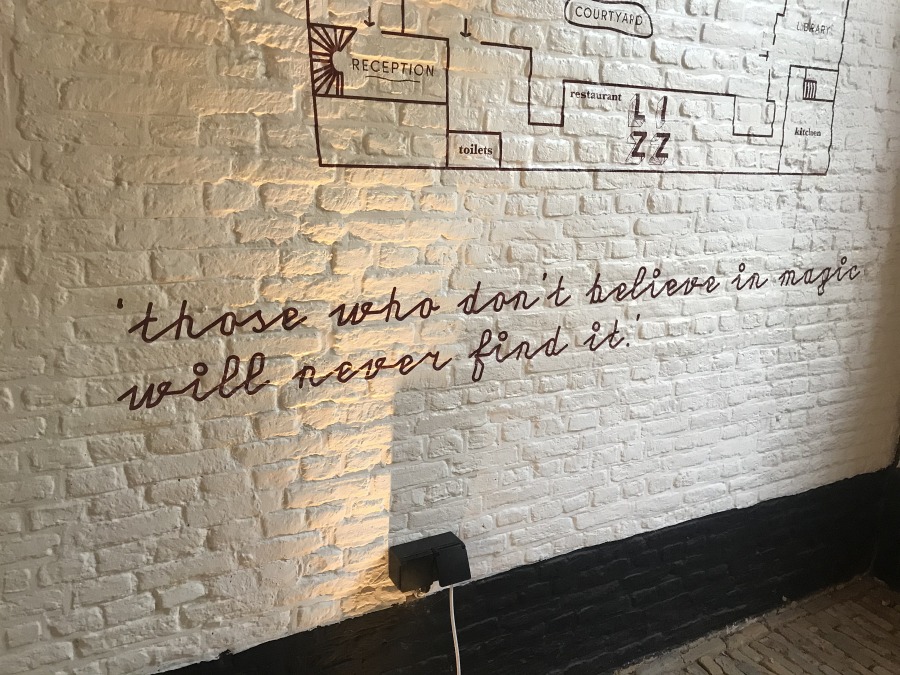 COURTYARD
LIBRARY
RECEPTION
restaurant
LI
ZZ
kitchen
toilets
'those who don't believe in magic
will never find it.'